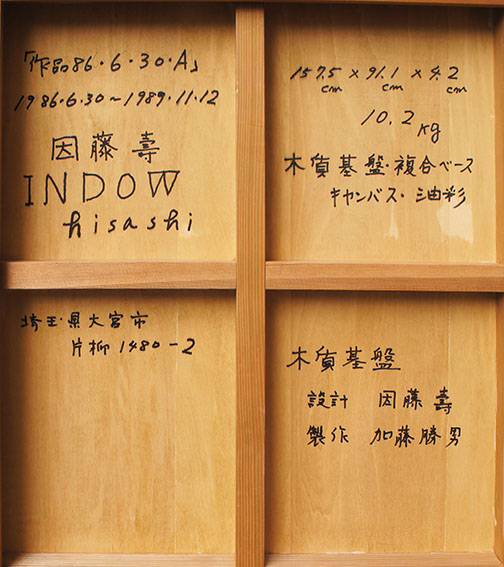 「作品86・6・30・A」
1986・6・30～1989・11・12
因藤壽
INDOW
hisashi
157.5 × 91.1 × 4.2
cm cm cm
10.2 kg
木質基盤・複合ベース
キャンバス・油彩
埼玉県大宮市
片柳1480-2
木質基盤
設計 因藤壽
製作 加藤勝男